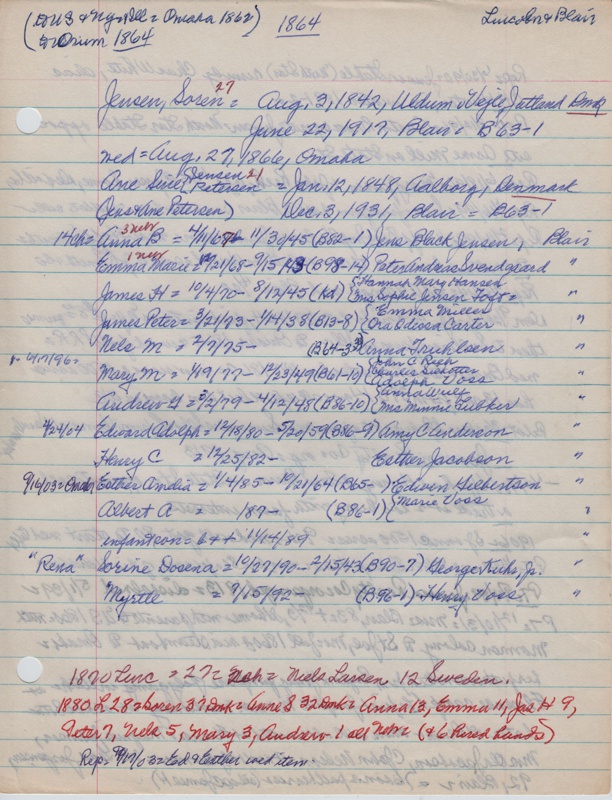 (to U.S & Ng. & Ill = Omaha 1862) 1864 Lincoln & Blair
to Orum 1864
Jensen, Soren 27 = Aug. 3, 1842, Uldum Vejle, Jutland Dmk
June 22, 1917, Blair = B63-1
wed = Aug. 27, 1866, Omaha
Ane Sine {Jensen 21 Petersen = Jan. 12, 1848, Aalborg, Denmark
(Jens & Ane Petersen) Dec. 3, 1931, Blair = B63-1
14ch = Anna B 3 neb = 4/11/67 11/30/45 (B82-1) Jens Black Jensen, Blair
Emma Marie 1 neb = 10/21/68 - 9/15/43 (B98-14) Peter Andreas Svendgaard "
James H = 10/4/70 - 8/12/45 (Kd) {Hannah Mary Hansen
Mrs Sophie Jensen Toft = "
James Peter = 3/21/73 - 4/14/38 (B13-8) {Emma Miller
Ora Edessa Carter "
Nels M = 2/7/75 - (B64-3) Anna Fruhlsen "
- 4/17/96 = Mary M = 1/19/77 - 12/23/49 (B61-10) {John C Rich
Charles Shotter
Adolph Voss "
Andrew G = 3/2/79 - 4/12/48 (B86-10) {Anna Wulf
Mrs Minnie Fulker "
2/24/04 Edward Adolph = 12/18/80 - 5/20/59 (B86-9) Amy C Anderson "
Henry C = 12/25/82 - Esther Jacobson "
9/16/03 = Omaha Esther Amelia = 1/4/85 - 10/21/64 (B65- ) Edwin Hilbertson - "
Albert A = /87 - (B86-1) {Marie Voss "
infant son = b + + 11/14/89 "
"Rena" Sorine Dosena = 10/27/90 - 2/15/43 (B90-7) George Kuhr, Jr. "
Myrtle = 7/15/92 - (B96-1) Henry Voss "
1870 Linc = 27 = Niels Larsen 12 Sweden.
1880 L 28 = Soren 37 Dmk = Anne S 32 Dmk = Anna 13, Emma 11, Jas H 9,
Peter 7, Nels 5, Mary 3, Andrew 1 all Neb = (& 6 hired hands)
Rep. 9/17/03 = Ed & Esther wed item.